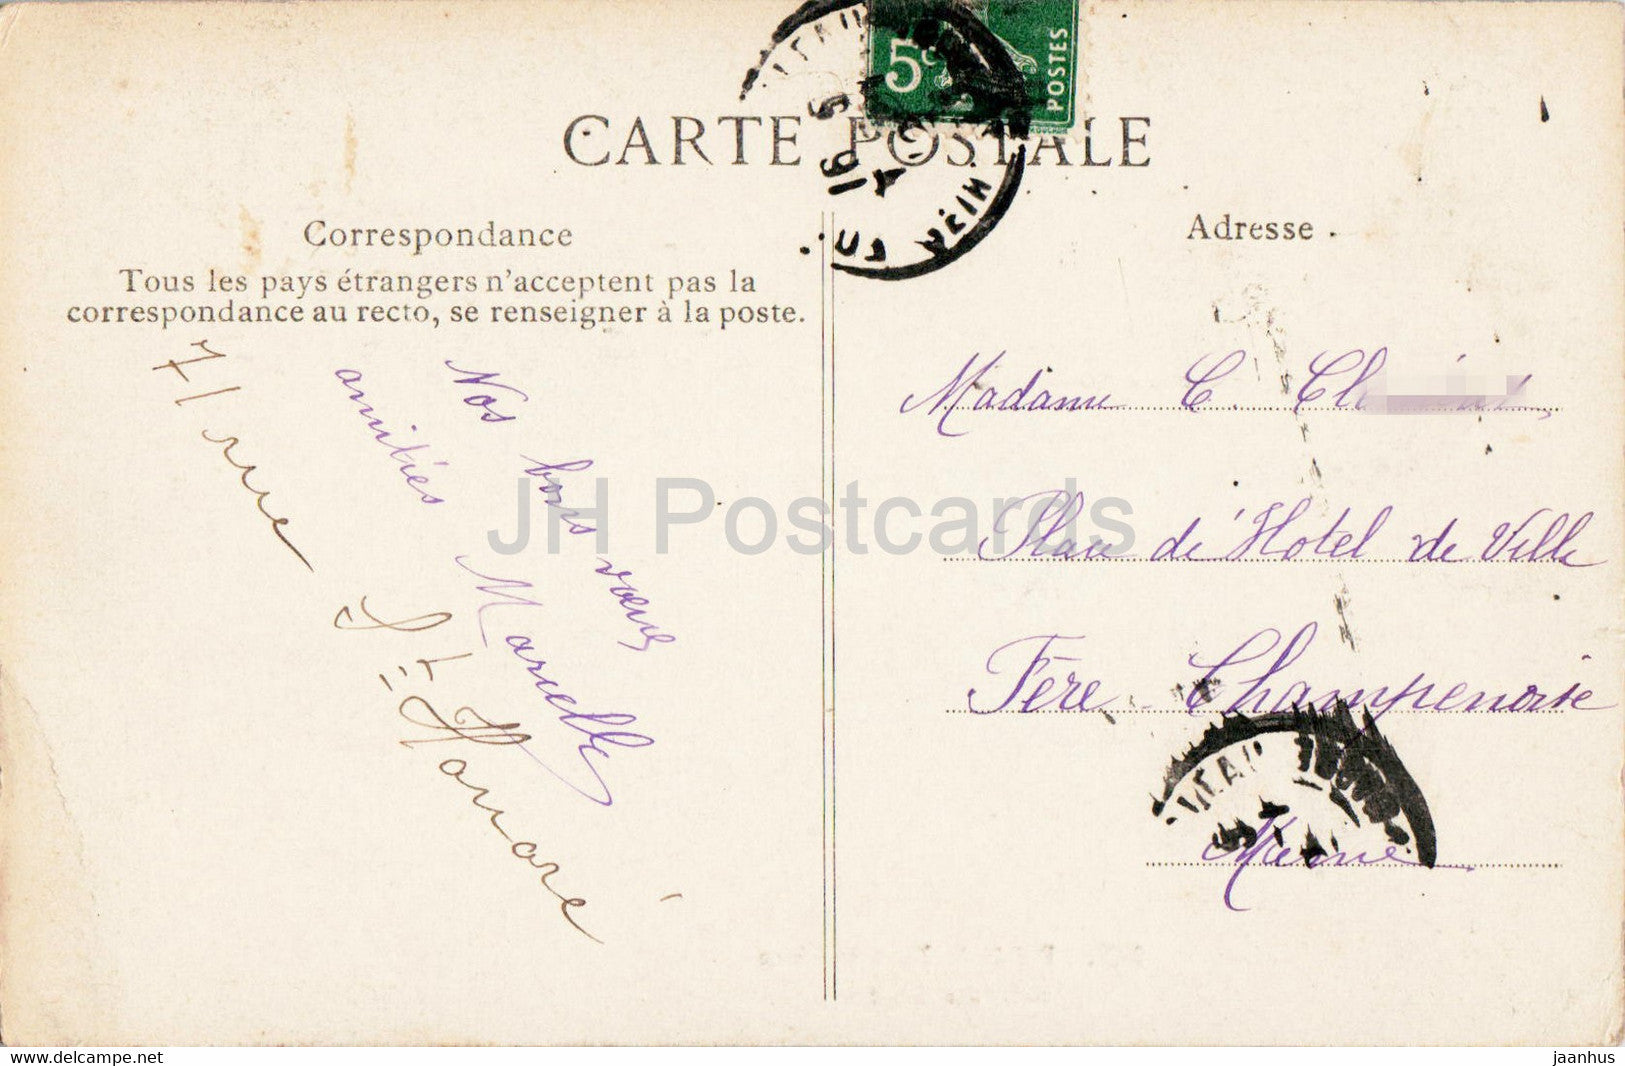 5c
POSTES
CARTE POSTALE
Correspondance
Tous les pays étrangers n'acceptent pas la
correspondance au recto, se renseigner à la poste.
Adresse
Nos bons vœux
amitiés Marcelle
7/ rue St Honoré
Madame C.
Place de l'Hotel de Ville
Fère-Champenoise
Marne
JH Postcards
www.delcampe.net
jaanhus